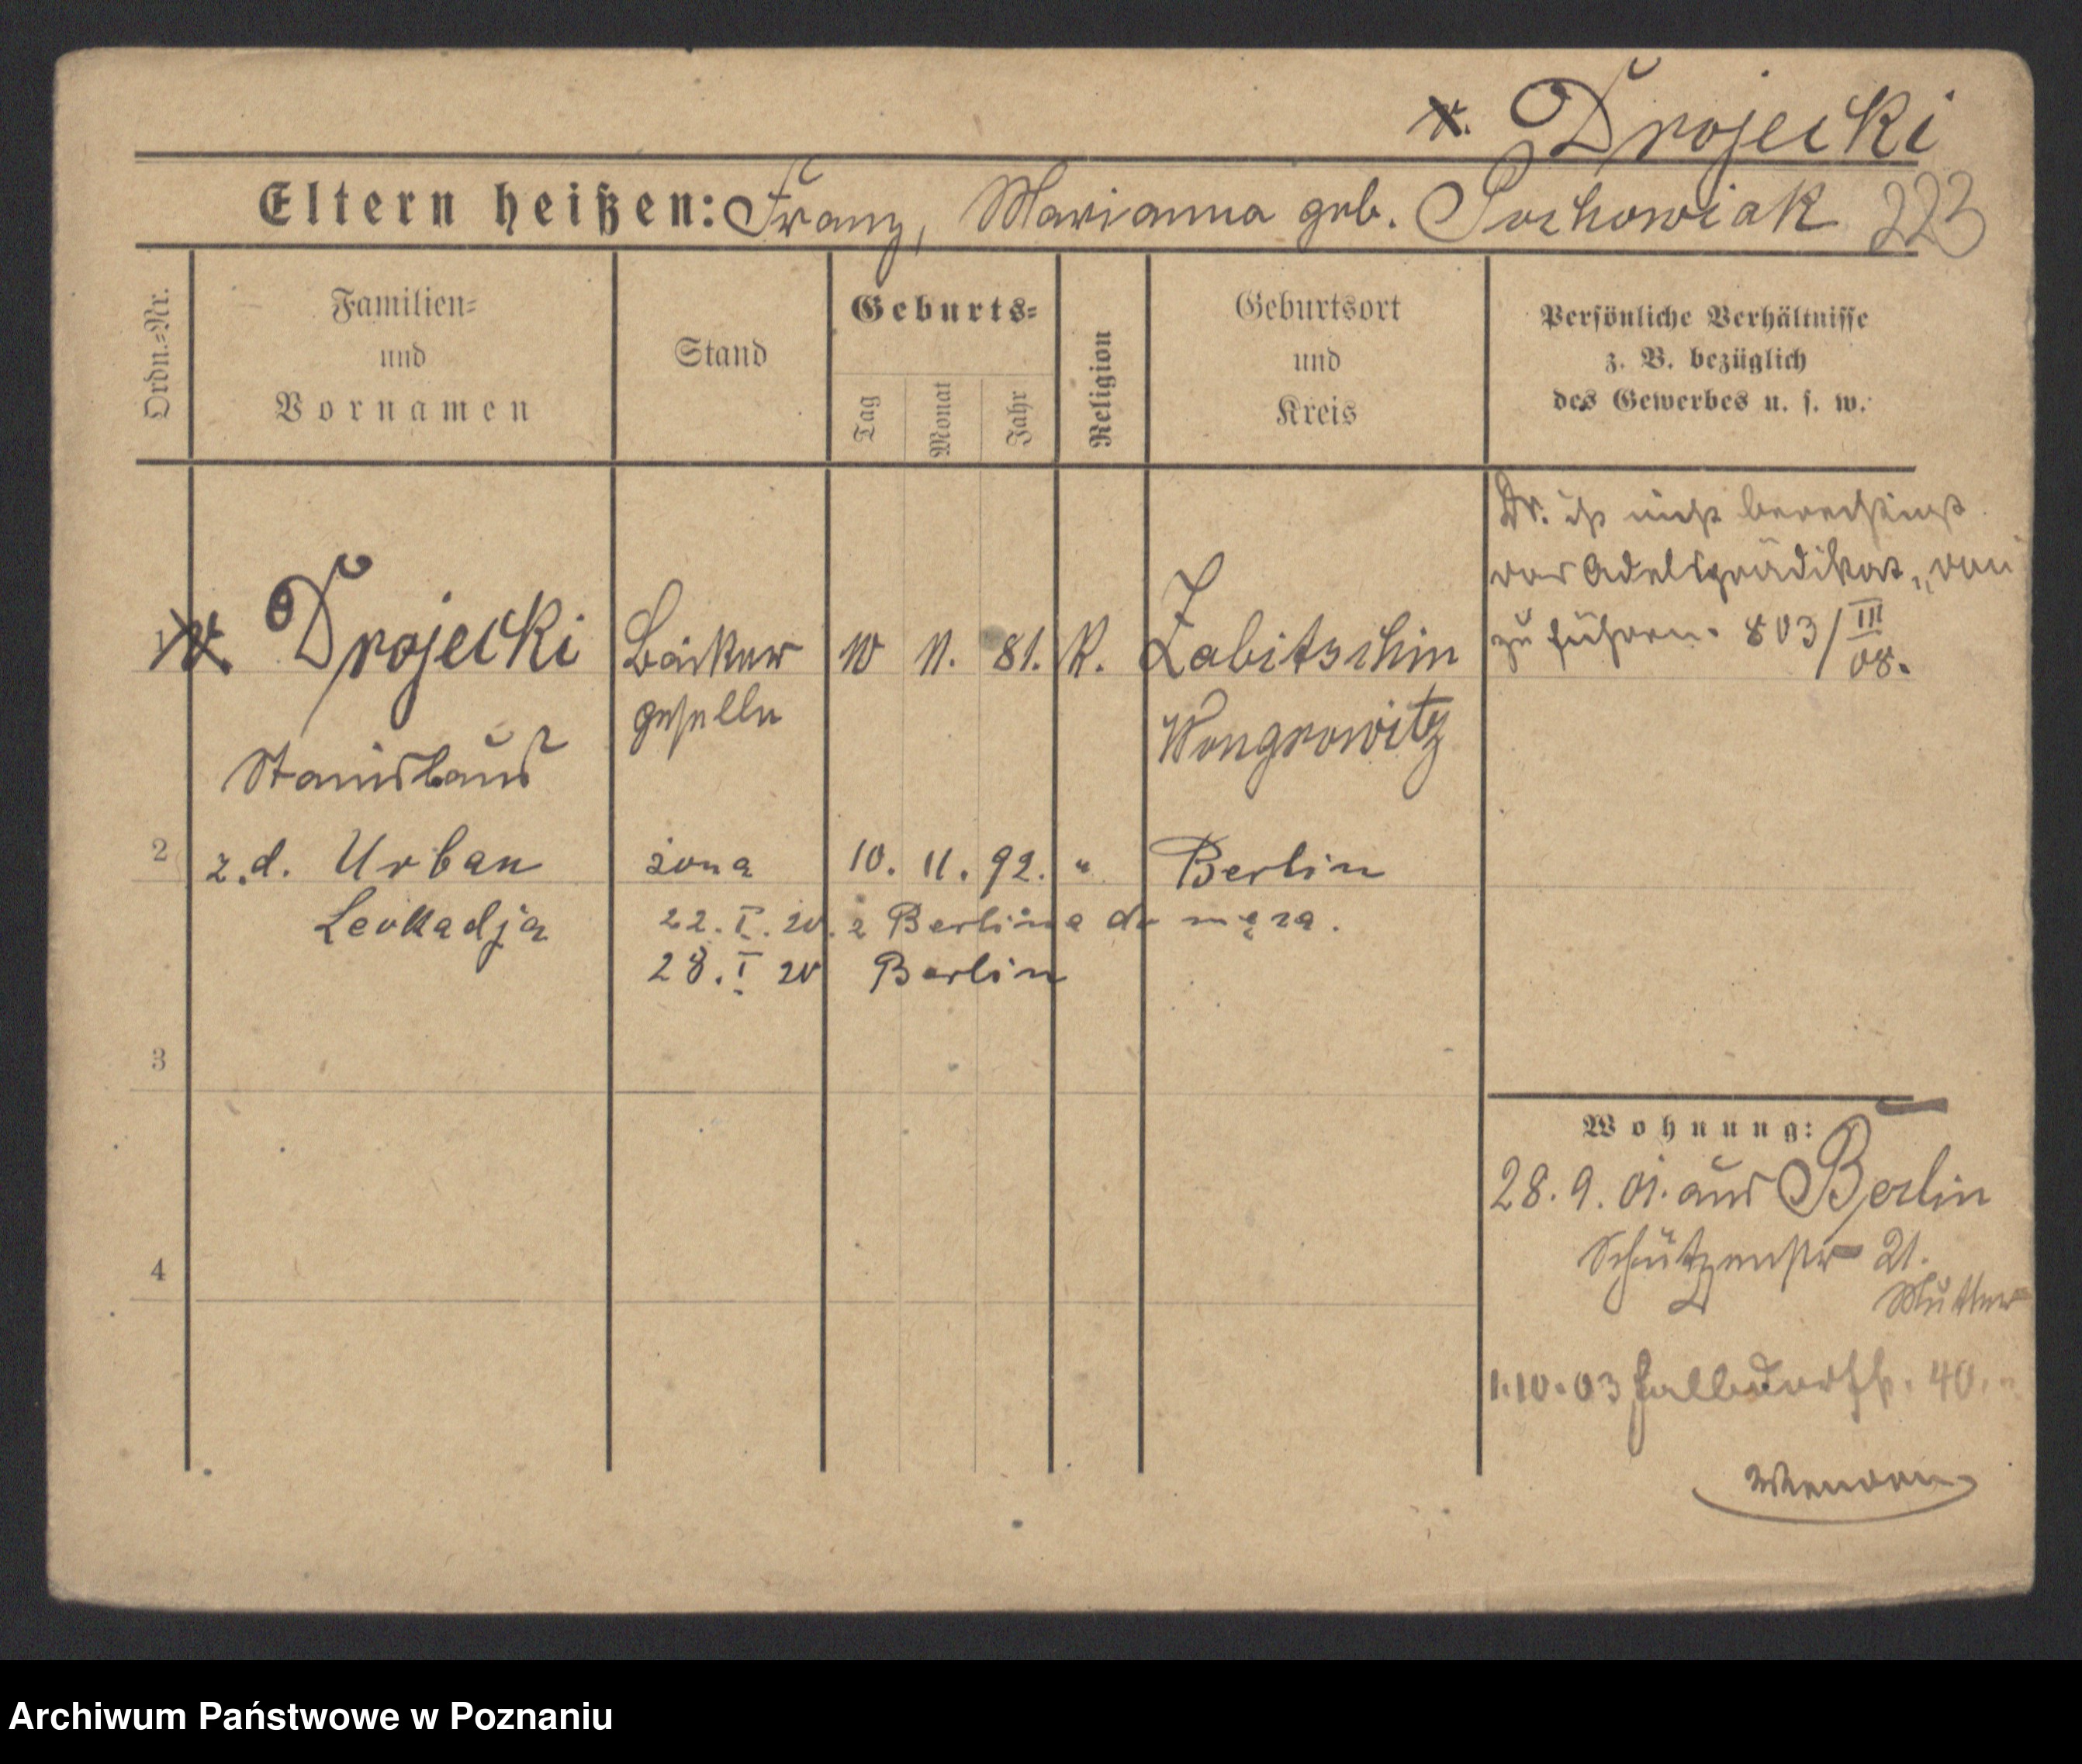 v. Drojecki
Eltern heißen: Franz, Marianna geb. Sochowiak 223
Ordn.-Nr.
Familien-
und
Vornamen
Stand
Geburts-
Tag
Monat
Jahr
Religion
Geburtsort
und
Kreis
Persönliche Verhältnisse
z. B. bezüglich
des Gewerbes u. s. w.
Dr. ist nicht berechtigt
das Adelsprädikat „von"
zu führen. 803/III 08.
1 v. Drojecki Bäcker 10 11. 81. K. Zabitschin
geselle Wongrowitz
Stanislaus
2 z.d. Urban żona 10. 11. 92. " Berlin
Leokadja 22. I. 20. z Berlina do męża.
28. I 20 Berlin
3
4
Wohnung:
28. 9. 01. aus Berlin
Schützenstr 21.
Mutter
1.10.03 Halbdorfstr. 40.
Archiwum Państwowe w Poznaniu